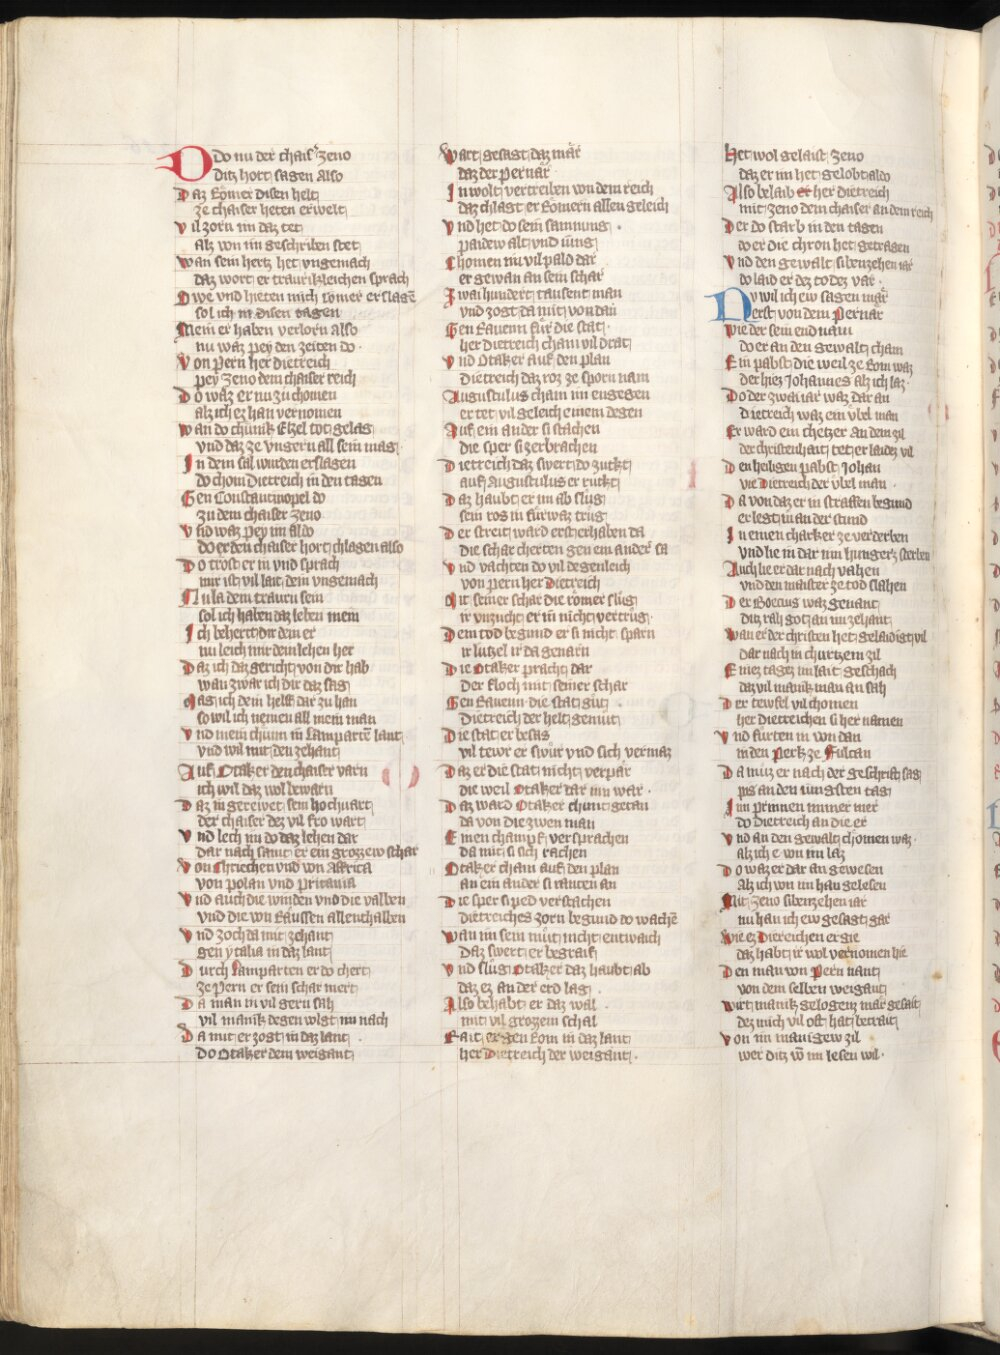 Do do nu der chaisʼ zeno
Ditz hort sagen also
Daz Romer disen helt
ze chaiser heten erwelt
Vil zorn im daz tet
alz von im geschriben stet
Wan sein hertz het ungemach
daz wort er traurikleichen sprach
Owe vnd hieten mich romer erslagē
sol ich in disen tagen
Mein er haben verlorn also
nu waz pey den zeiten do
Von Pern her dietreich
pey zeno dem chaiser reich
Do waz er nu zu chomen
alz ich ez han vernomen
Wan do chunik Etzel tot gelag
vnd daz ze vngern all sein mag
In dem sal wurden erslagen
do chom Dietreich in den tagen
Gen Constantinopel do
zu dem chaiser zeno
Vnd waz pey im aldo
do er den chaiser hort chlagen also
Do trost er in vnd sprach
mir ist vil lait dein vngemach
Nu la dein trauren sein
sol ich haben daz leben mein
Ich behert dir dein er
nu leich mir dein lehen her
Daz ich daz gericht von dir hab
wan zwar ich dir daz sag
Mag ich dein helf dar zu han
so wil ich nemen all mein man
Vnd mein chunn in Lampartē lant
vnd wil mit den zehant
Auf Otaker den chaiser varn
ich wil daz wol bewarn
Daz in gerewet sein hochvart
der chaiser dez vil fro wart
Vnd lech im do daz lehen dar
dar nach samt er ein grozzew schar
Von Chriechen vnd von Affrica
von polan vnd pritania
Vnd auch die winden vnd die valben
vnd die von Raussen allenthalben
Vnd zoch da mit zehant
gen ytalia in daz lant
Durch Lamparten er do chert
ze Pern er sein schar mert
Da man in vil gern sah
vil manik degen volgt im nach
Da mit er zogt in daz lant
do Otaker dem weigant
Wart gesagt daz mär
daz der pernär
In wolt vertreiben von dem reich
daz chlagt er Romern allen geleich
Vnd het do sein samnung
paidew alt vnd iung
Chomen im vil pald dar
er gewan an sein schar
Zwai hundert tausent man
vnd zogt da mit von dan
Gen Rauenn für die stat
her dietreich cham vil drat
Vnd Otaker auf den plan
dietreich daz roz ze sporn nam
Augustulus cham im engegen
er tet vil geleich einem degen
Auf ein ander si stachen
die sper si zerbrachen
Dietreich daz swert do zukt
auf Augustulus er rukt
Daz haubt er im ab slug
sein ros in fürwaz trug
Der streit ward erst erhaben da
die schar cherten gen ein ander sa
Vnd vachten do vil degenleich
von pern her Dietreich
Mit seiner schar die romer slug
ir vnzucht er in nicht vertrug
Dem tod begund er si nicht sparn
ir lutzel ir da genarn
Die Otaker pracht dar
Der floch mit seiner schar
Gen Rauenn die stat gut
Dietreich der helt gemut
Die stat er besas
vil tewr er swur vnd sich vermaz
Daz er die stat nicht verpar
die weil Otaker dar inn war
Daz ward Otaker chunt getan
da von die zwen man
Einen champf versprachen
da mit si sich rachen
Otaker cham auf den plan
an ein ander si ranten an
Die sper si ped verstachen
dietreiches zorn begund do wachē
Wan im sein mut nicht entwaich
daz swert er begraif
Vnd slug Otaker daz haubt ab
daz ez an der erd lag
Also behabt er daz wal
mit vil grozzem schal
Rait er gen Rom in daz lant
her Dietreich der weigant
Het wol gelaist zeno
daz er im het gelobt aldo
Also belaib er her dietreich
mit zeno dem chaiser an dem reich
Der do starb in den tagen
do er die chron het getragen
Vnd den gewalt sibenzehen iar
do laid er dez todez var
Nu wil ich ew sagen mär
Aerst von dem Pernär
Wie der sein end nam
do er an den gewalt cham
Ein pabst die weil ze Rom waz
der hiez Johannes alz ich laz
Do der zwai iar waz dar an
Dietreich waz ein vbel man
Er ward ein chetzer an dem zil
der christenhait tet er laidez vil
Den heiligen pabst Johan
vie Dietreich der vbel man
Da von daz er in straffen begund
er legt in an der stund
In einen charker ze verderben
vnd lie in dar inn hungers sterben
Auch lie er dar nach vahen
vnd den maister ze tod slahen
Der Boecius waz genant
ditz rah got an im zehant
Wan er der christen het gelaidigt vil
dar nach in churtzem zil
Einez tagez im lait geschach
daz vil manik man an sah
Der tewfel vil chomen
her Dietreichen si her namen
Vnd fürten in von dan
in den perk ze Fulcan
Da muz er nach der geschrift sag
pis an den iungsten tag
Inn prinnen immer mer
do Dietreich an die er
Vnd an den gewalt chomen waz
alz ich e von im laz
Do waz er dar an gewesen
Alz ich von im han gelesen
Mit zeno sibenzehen iar
nu han ich ew gesagt gar
Wie ez Dietreichen ergie
daz habt ir wol vernomen hie
Den man von Pern nant
von dem selben weigant
Wirt manik gelogenz mär gesait
dez mich vil oft hat betrait
Von im man igew zil
wer ditz vō im lesen wil